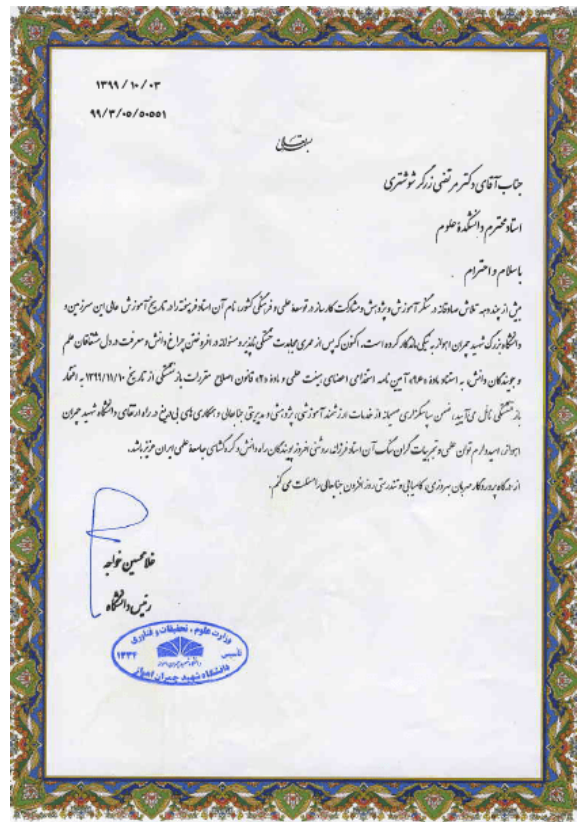 ۱۳۹۹/۱۰/۰۳
۹۹/۳/۰۵/۵۰۵۵۱
بسمه تعالی
جناب آقای دکتر مرتضی زرگر شوشتری
استاد محترم دانشکدهٔ علوم
با سلام و احترام
بیش از چند دهه تلاش صادقانه در سنگر آموزش و پژوهش و مشارکت کارساز در توسعهٔ علمی و فرهنگی کشور، نام آن استاد فرهیخته را در تاریخ آموزش عالی این سرزمین و
دانشگاه بزرگ شهید چمران اهواز به نیکی ماندگار کرده است. اکنون که پس از عمری مجاهدت خستگی ناپذیر و مسئولانه در افروختن چراغ دانش و معرفت در دل مشتاقان علم
و جویندگان دانش، به استناد مادهٔ آیین نامه استخدامی اعضای هیئت علمی و مادهٔ قانون اصلاح مقررات بازنشستگی از تاریخ ۱۳۹۹/۱۱/۱۰ به افتخار
بازنشستگی نائل می‌آیید، ضمن سپاسگزاری صمیمانه از خدمات ارزشمند آموزشی، پژوهشی و مدیریتی جنابعالی و همکاری های بی‌دریغ در راه ارتقای دانشگاه شهید چمران
اهواز، امیدوارم توان علمی و تجربیات گران سنگ آن استاد فرزانه، روشنی افروز پویندگان راه دانش و گره‌گشای جامعهٔ علمی ایران عزیز باشد.
از درگاه پروردگار مهربان بهروزی، کامیابی و تندرستی روزافزون جنابعالی را مسئلت می کنم.
غلامحسین خواجه
رئیس دانشگاه
وزارت علوم، تحقیقات و فناوری
تأسیس ۱۳۳۴
دانشگاه شهید چمران اهواز